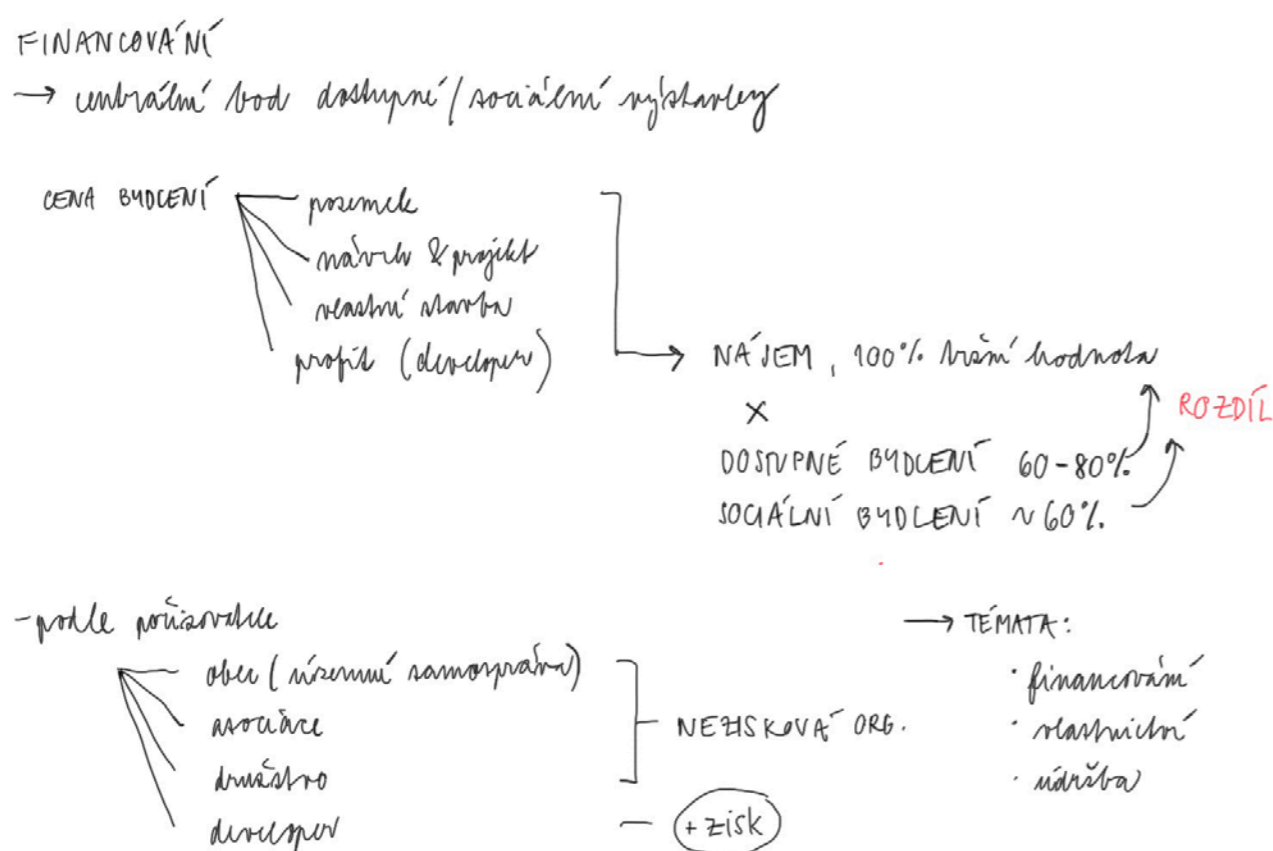 FINANCOVÁNÍ
→ centrální bod dostupné/sociální výstavby
CENA BYDLENÍ
pozemek
návrh & projekt
vlastní stavba
profit (developer)
→ NÁJEM, 100% tržní hodnota
×
DOSTUPNÉ BYDLENÍ 60-80%
SOCIÁLNÍ BYDLENÍ ~60%
ROZDÍL
- podle pořizovatele
obec (územní samospráva)
asociace
družstvo
developer
NEZISKOVÁ ORG.
- +zisk
→ TÉMATA:
· financování
· vlastnictví
· údržba